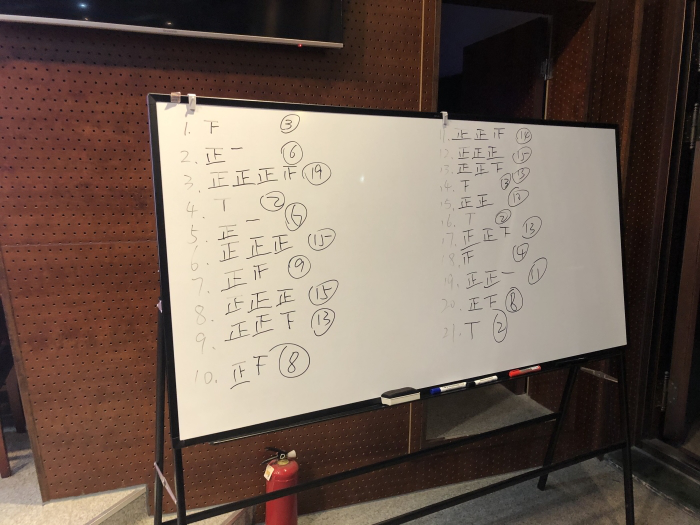 1. 下 ③
2. 正一 ⑥
3. 正正正正 ⑲
4. T ②
5. 正一 ⑥
6. 正正正 ⑮
7. 正正 ⑨
8. 正正正 ⑮
9. 正正下 ⑬
10. 正下 ⑧
11. 正正正 ⑭
12. 正正正 ⑮
13. 正正下 ⑬
14. 下 ③
15. 正正
16. T ②
17. 正正下 ⑬
18. 正 ④
19. 正正一 ⑪
20. 正下 ⑧
21. T ②